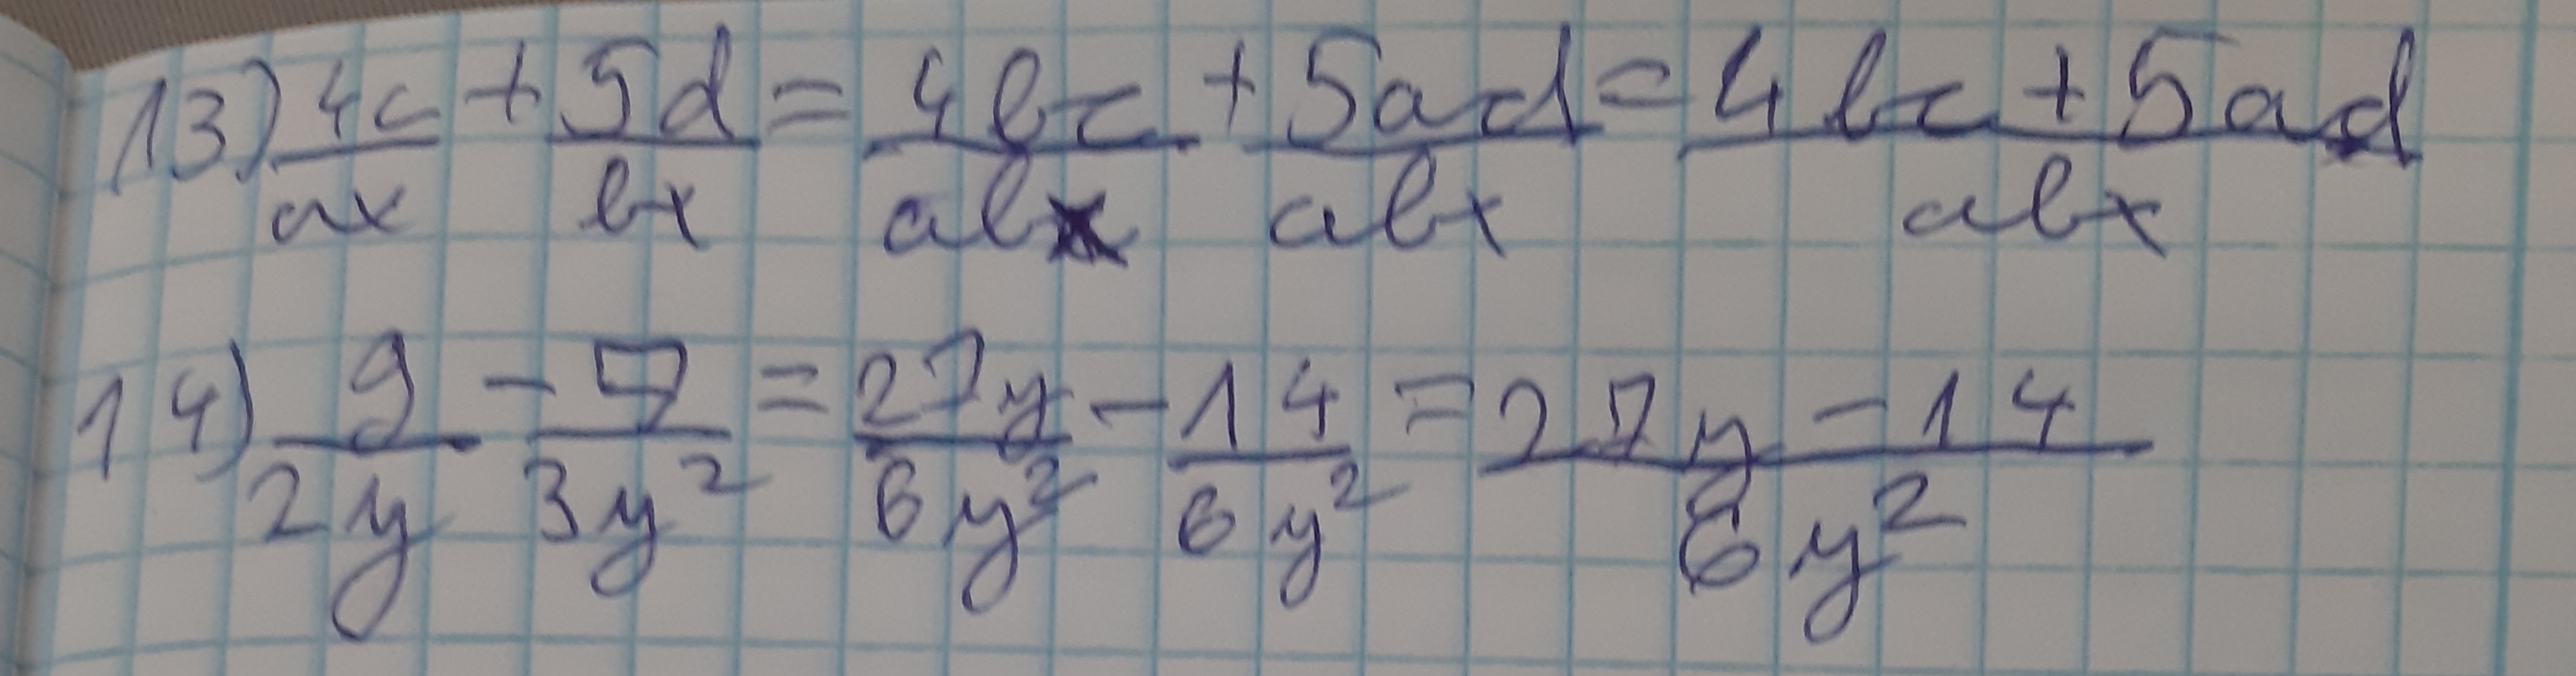 13) 4c/ax + 5d/bx = 4bc/abx + 5ad/abx = 4bc + 5ad/abx
14) 9/2y - 7/3y² = 27y/6y² - 14/6y² = 27y - 14/6y²